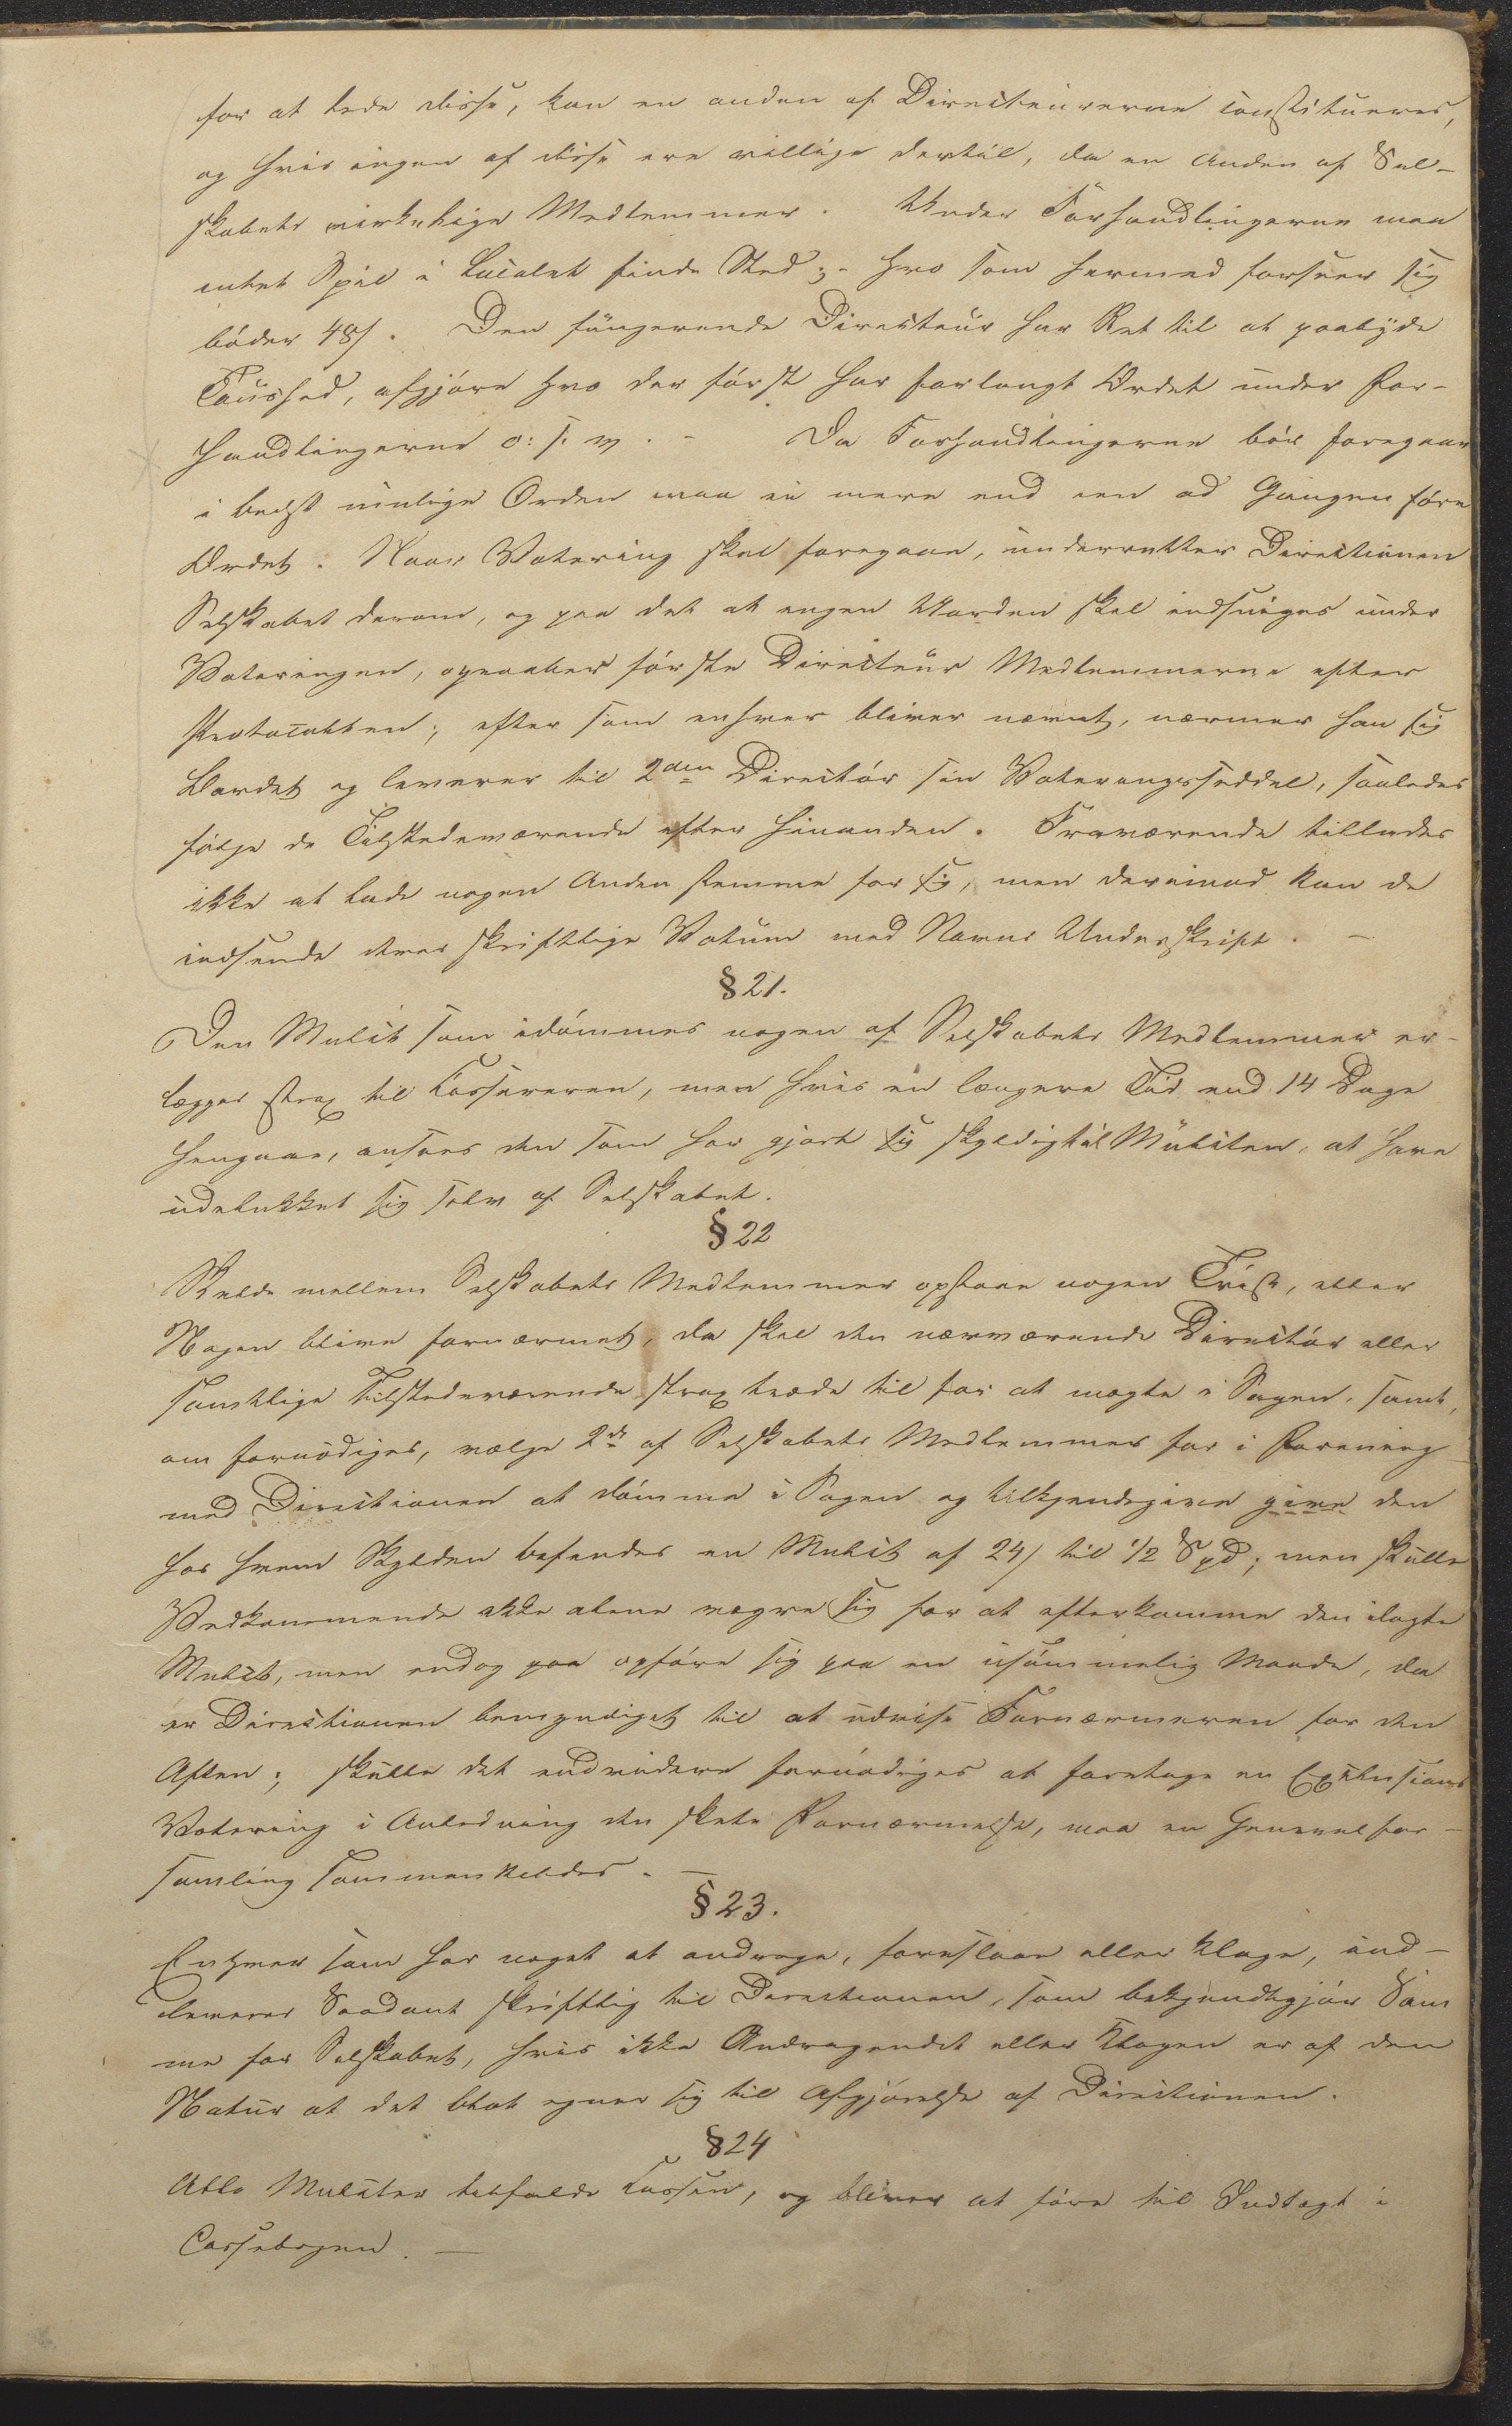 for at lede disse, kan en anden af Directeurerne constitueres,
og hvis ingen af disse ere villige dertil, da en Anden af Sel-
skabets virkelige Medlemmer. Under Forhandlingerne maa
intet Spil i Localet finde Sted; - hvo som hermed forseer sig
bøder 48 s. Den fungerende Directeur har Ret til at paabyde
Taushed, afgjøre hvo der først har forlangt Ordet under For-
handlingerne o: s. v. - Da Forhandlingerne bør foregaae
i bedst mulige Orden maa ei mere end een ad Gangen føre
Ordet. Naar Votering skal foregaae, underretter Directionen
Selskabet derom, og paa det at ingen Uorden skal indsniges under
Voteringen, opraaber første Directeur Medlemmerne efter
Protocollen; efter som enhver bliver nævnt, nærmer han sig
Bordet og leverer til 2den Directør sin Voteringsseddel, saaledes
følge de Tilstedeværende efter hinanden. Fraværende tillades
ikke at lade nogen Anden stemme for sig, men derimod kan de
indsende deres skriftlige Votum med Navns Underskrift. -
§ 21.
Den Mulct som idømmes nogen af Selskabets Medlemmer er-
lægges strax til Cassereren, men hvis en længere Tid end 14 Dage
hengaae, ansees den som har gjort sig skyldig til Mulcten, at have
udelukket sig selv af Selskabet.
§ 22
Skulde mellem Selskabets Medlemmer opstaae nogen Tvist, eller
Nogen blive fornærmet, da skal den nærværende Directør eller
samtlige Tilstedeværende strax træde til for at mægle i Sagen, samt,
om fornødiges, vælge 2de af Selskabets Medlemmer for i Forening
med Directionen at dømme i Sagen og tilkjendegive give den
hos hvem Skylden befindes en Mulct af 24 s til 1/2 Spd; men skulle
Vedkommende ikke alene vægre sig for at efterkomme den ilagte
Mulct, men endog paa opføre sig paa en usømmelig Maade, da
er Directionen bemyndiget til at udvise Fornærmeren for den
Aften; skulle det endvidere fornødiges at foretage en Exclusions
Votering i Anledning den skete Fornærmelse, maa en Generalfor-
samling sammenkaldes. -
§ 23.
Enhver som har noget at andrage, foreslaae eller klage, ind-
leverer Saadant skriftlig til Directionen, som bekjendtgjør Sam
me for Selskabet, hvis ikke Andragendet eller Klagen er af den
Natur at det blot egner sig til Afgjørelse af Directionen.
§ 24
Alle Mulcter tilfalde Cassen, og bliver at føre til Indtægt i
Cassebogen. -